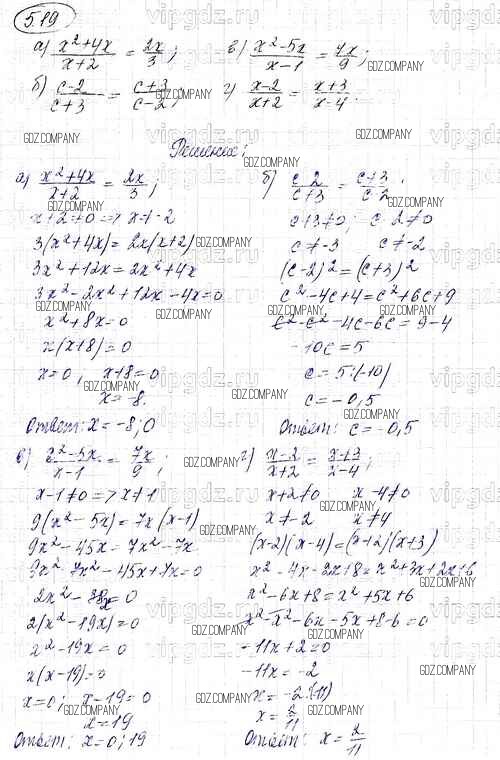 519
а) (x²+4x)/(x+2) = 2x/3; в) (x²-5x)/(x-1) = 7x/9;
б) (c-2)/(c+3) = (c+3)/(c-2); г) (x-2)/(x+2) = (x+3)/(x-4).
Решение:
а) (x²+4x)/(x+2) = 2x/3;
x+2≠0 => x≠-2
3(x²+4x)=2x(x+2)
3x²+12x=2x²+4x
3x²-2x²+12x-4x=0
x²+8x=0
x(x+8)=0
x=0, x+8=0
x=-8.
Ответ: x=-8; 0
б) (c-2)/(c+3) = (c+3)/(c-2).
c+3≠0, c-2≠0
c≠-3 c≠-2
(c-2)²=(c+3)²
c²-4c+4=c²+6c+9
c²-c²-4c-6c=9-4
-10c=5
c=5:(-10)
c=-0,5
Ответ: c=-0,5
в) (x²-5x)/(x-1) = 7x/9;
x-1≠0 => x≠1
9(x²-5x)=7x(x-1)
9x²-45x=7x²-7x
9x²-7x²-45x+7x=0
2x²-38x=0
2(x²-19x)=0
x²-19x=0
x(x-19)=0
x=0; x-19=0
x=19
Ответ: x=0; 19
г) (x-2)/(x+2) = (x+3)/(x-4);
x+2≠0 x-4≠0
x≠-2 x≠4
(x-2)(x-4)=(x+2)(x+3)
x²-4x-2x+8=x²+3x+2x+6
x²-6x+8=x²+5x+6
x²-x²-6x-5x+8-6=0
-11x+2=0
-11x=-2
x=-2:(-11)
x=2/11
Ответ: x=2/11
GDZ.COMPANY
vipgdz.ru